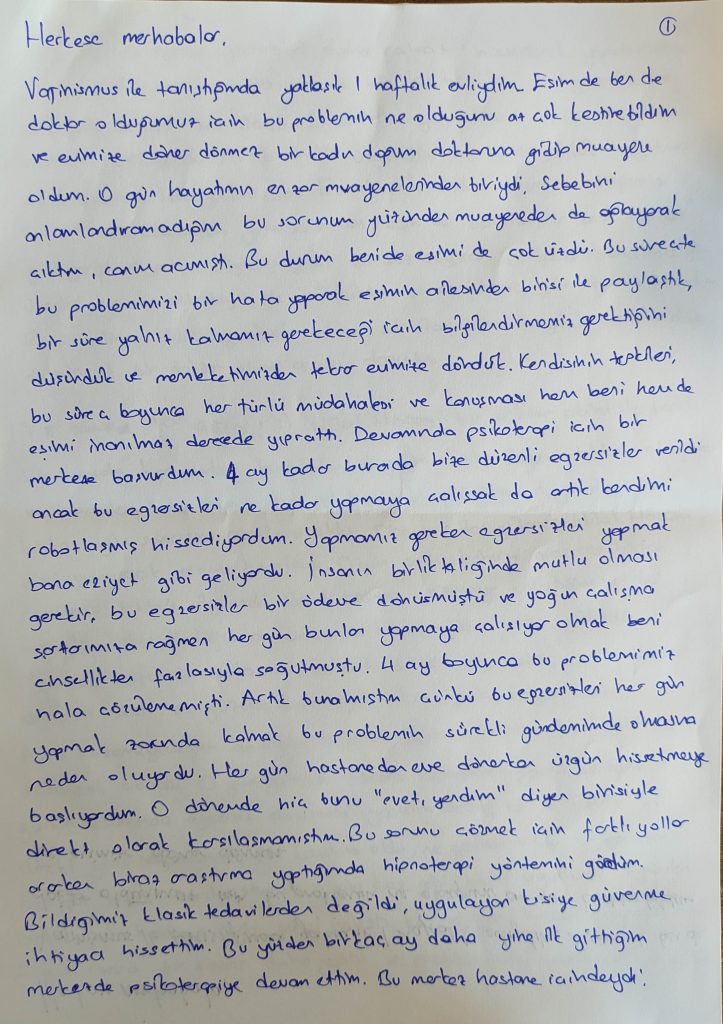 ①
Herkese merhabalar,
Vajinismus ile tanıştığımda yaklaşık 1 haftalık evliydim. Eşim de ben de
doktor olduğumuz için bu problemin ne olduğunu az çok kestirebildim
ve evimize döner dönmez bir kadın doğum doktoruna gidip muayene
oldum. O gün hayatımın en zor muayenelerinden biriydi. Sebebini
anlamlandıramadığım bu sorunum yüzünden muayeneden de ağlayarak
çıktım, canım acımıştı. Bu durum beni de eşimi de çok üzdü. Bu süreçte
bu problemimizi bir hata yaparak eşimin ailesinden birisi ile paylaştık,
bir süre yalnız kalmamız gerekeceği için bilgilendirmemiz gerektiğini
düşündük ve memleketimizden tekrar evimize döndük. Kendisinin tepkileri,
bu süreç boyunca her türlü müdahalesi ve konuşması hem beni hem de
eşimi inanılmaz derecede yıprattı. Devamında psikoterapi için bir
merkeze başvurdum. 4 ay kadar burada bize düzenli egzersizler verildi
ancak bu egzersizleri ne kadar yapmaya çalışsak da artık kendimi
robotlaşmış hissediyordum. Yapmamız gereken egzersizleri yapmak
bana eziyet gibi geliyordu. İnsanın birlikteliğinde mutlu olması
gerekir, bu egzersizler bir ödeve dönüşmüştü ve yoğun çalışma
şartlarımıza rağmen her gün bunları yapmaya çalışıyor olmak beni
cinsellikten fazlasıyla soğutmuştu. 4 ay boyunca bu problemimiz
hala çözülememişti. Artık bunalmıştım çünkü bu egzersizleri her gün
yapmak zorunda kalmak bu problemin sürekli gündemimde olmasına
neden oluyordu. Her gün hastaneden eve dönerken üzgün hissetmeye
başlıyordum. O dönemde hiç bunu "evet, yendim" diyen birisiyle
direkt olarak karşılaşmamıştım. Bu sorunu çözmek için farklı yollar
ararken biraz araştırma yaptığımda hipnoterapi yöntemini gördüm.
Bildiğimiz klasik tedavilerden değildi, uygulayan kişiye güvenme
ihtiyacı hissettim. Bu yüzden birkaç ay daha yine ilk gittiğim
merkezde psikoterapiye devam ettim. Bu merkez hastane içindeydi.